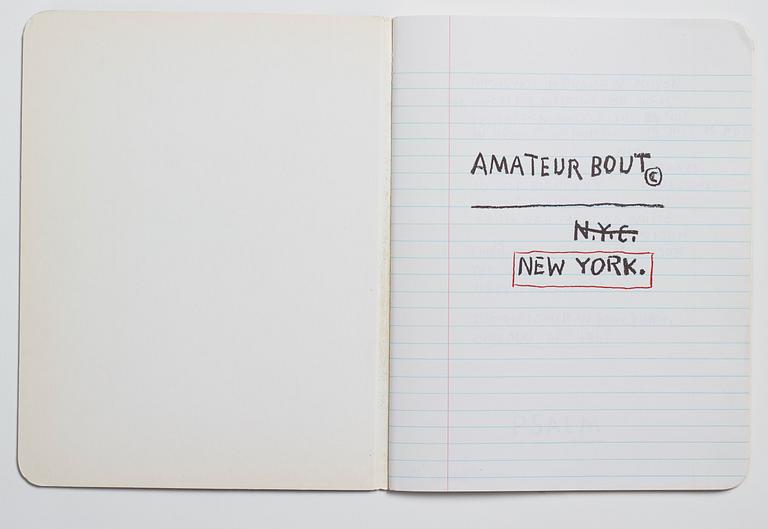 AMATEUR BOUT©
N.Y.C.
NEW YORK.
PSALM